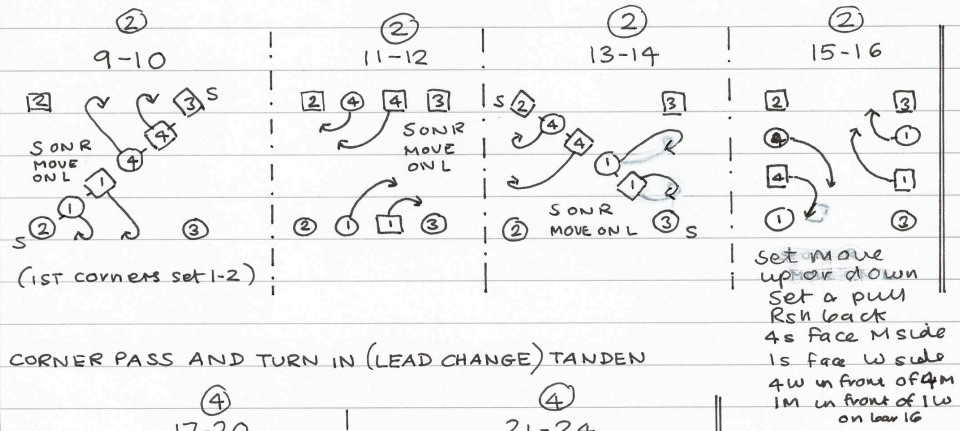 2 2 2 2
9-10 11-12 13-14 15-16
2 4 3 S
4
S ON R
MOVE
ON L
1
1
S 2 3
(1ST CORNERS SET 1-2)
2 4 4 3
S ON R
MOVE
ON L
2 1 1 3
S 2 3
4
4
1
1
S ON R
MOVE ON L
2 3 S
2 3
4 1
4 1
1 3
set move
up or down
Set a pull
Rsh back
4s face M side
1s face W side
4W in front of 4M
1M in front of 1W
on bar 16
CORNER PASS AND TURN IN (LEAD CHANGE) TANDEN
4 4
17-20 21-24